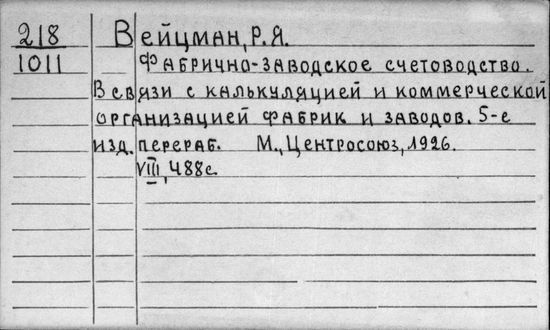 218 Вейцман, Р.Я.
1011 Фабрично-заводское счетоводство.
В связи с калькуляцией и коммерческой
организацией фабрик и заводов. 5-е
изд. перераб. М., Центросоюз, 1926.
VIII, 488с.